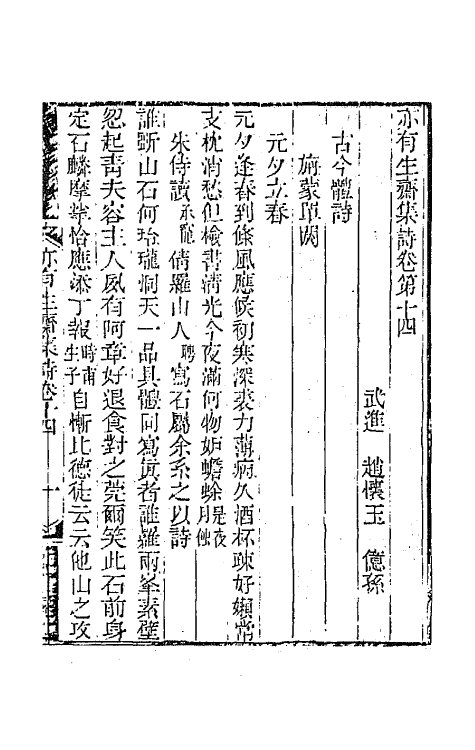 亦有生齋集詩卷第十四
武進　趙懷玉　億孫
古今體詩
旃蒙單閼
元夕立春
元夕逢春到條風應候初寒深裘力薄病久酒杯疎好嬾常
支枕消愁但檢書清光今夜滿何物妒蟾蜍是夜月蝕
朱侍讀承寵倩羅山人聘寫石屬余系之以詩
誰斲山石何玲瓏洞天一品具體同寫眞者誰羅兩峯素壁
忽起靑芙容主人夙有阿章好退食對之莞爾笑此石前身
定石麟摩挲恰應添丁報時甫生子自慚比德徒云云他山之攻
亦有生齋集詩卷十四　一